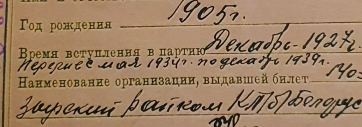 1905 г.
Год рождения
Время вступления в партию Декабрь-1927г.
Перерыв с мая 1934г. по декабрь 1939г.
Наименование организации, выдавшей билет
райком КП(б) Белорус